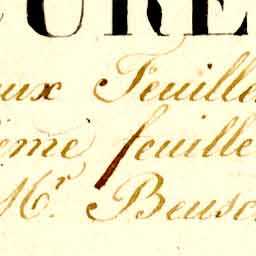 URE
eux Feuille
ième feuille
Mr. Beusc